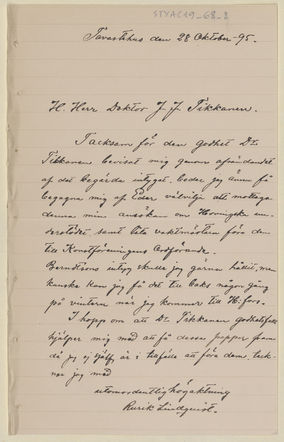 STYAC19-68-8
Tavastehus den 28 Oktober -95.
H. Herr Doktor J. J. Tikkanen.
Tacksam för den godhet Dr
Tikkanen bevisat mig genom afsändandet
af det begärda intyget, beder jag ännu få
begagna mig af Eder välvilja att mottaga
denna min ansökan om Hovingska un-
derstödet samt låta vaktmästaren föra den
till Konstföreningens Ordförande.
Berndtsons intyg skulle jag gärna hållit, men
kanske kan jag få det tillbaks någon gång
på vintern när jag kommer till H:fors.
I hopp om att Dr Tikkanen godhetsfullt
hjälper mig med att få dessa papper fram
då jag ej själf är i tillfälle att föra dem, teck-
nar jag med
utomordentlig högaktning
Rurik Lindqvist.